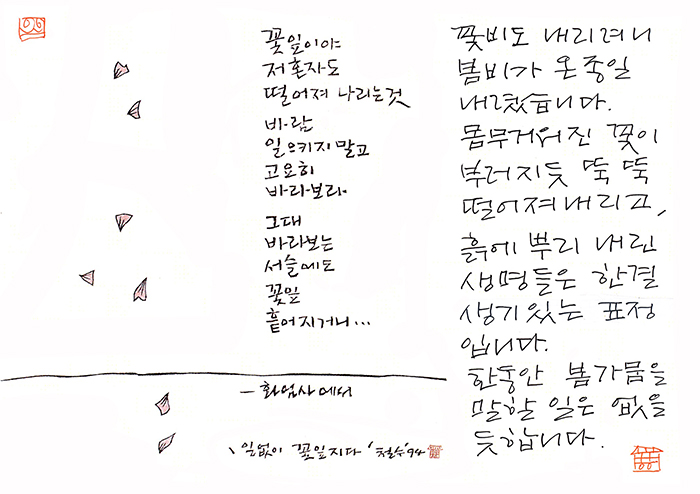 꽃잎이야
저 혼자도
떨어져 나리는것
바람
일으키지 말고
고요히
바라보라.
그대
바라보는
서슬에도
꽃잎
흩어지거니...
- 화엄사에서
일없이 꽃잎지다 '철수'94
꽃비도 내리려니
봄비가 온종일
내렸습니다.
몸무거워진 꽃이
부러지듯 뚝 뚝
떨어져내리고,
흙에 뿌리 내린
생명들은 한결
생기있는 표정
입니다.
한동안 봄가뭄을
말할 일은 없을
듯합니다.